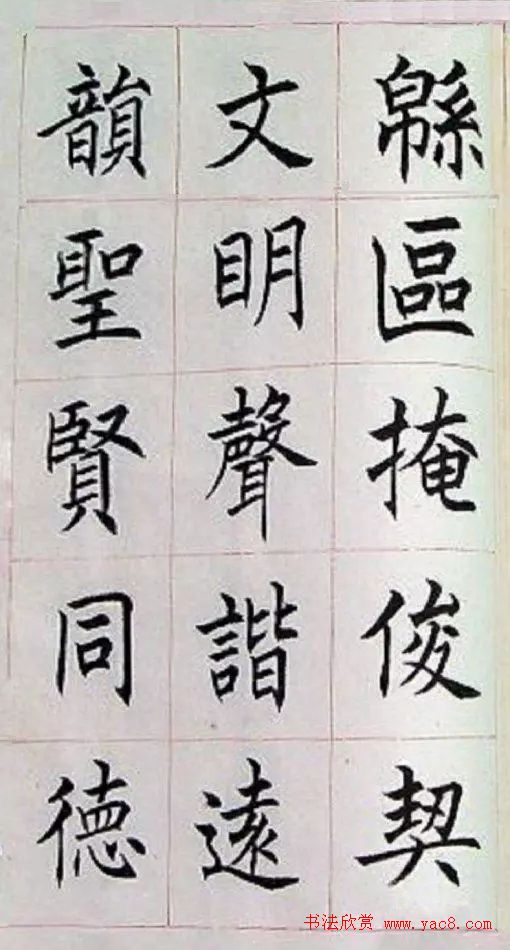 緜區掩俊契
文明聲諧遠
韻聖賢同德
书法欣赏 www.yac8.com